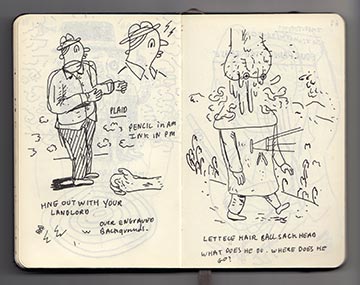 PLAID
PENCIL in AM
INK IN PM
HNG OUT WITH YOUR
LANDLORD
OVER ENGRAVED
BACKGROUNDS.
LETTECE HAIR BALL SACK HEAD
WHAT DOES HE DO. WHERE DOES HE
GO?